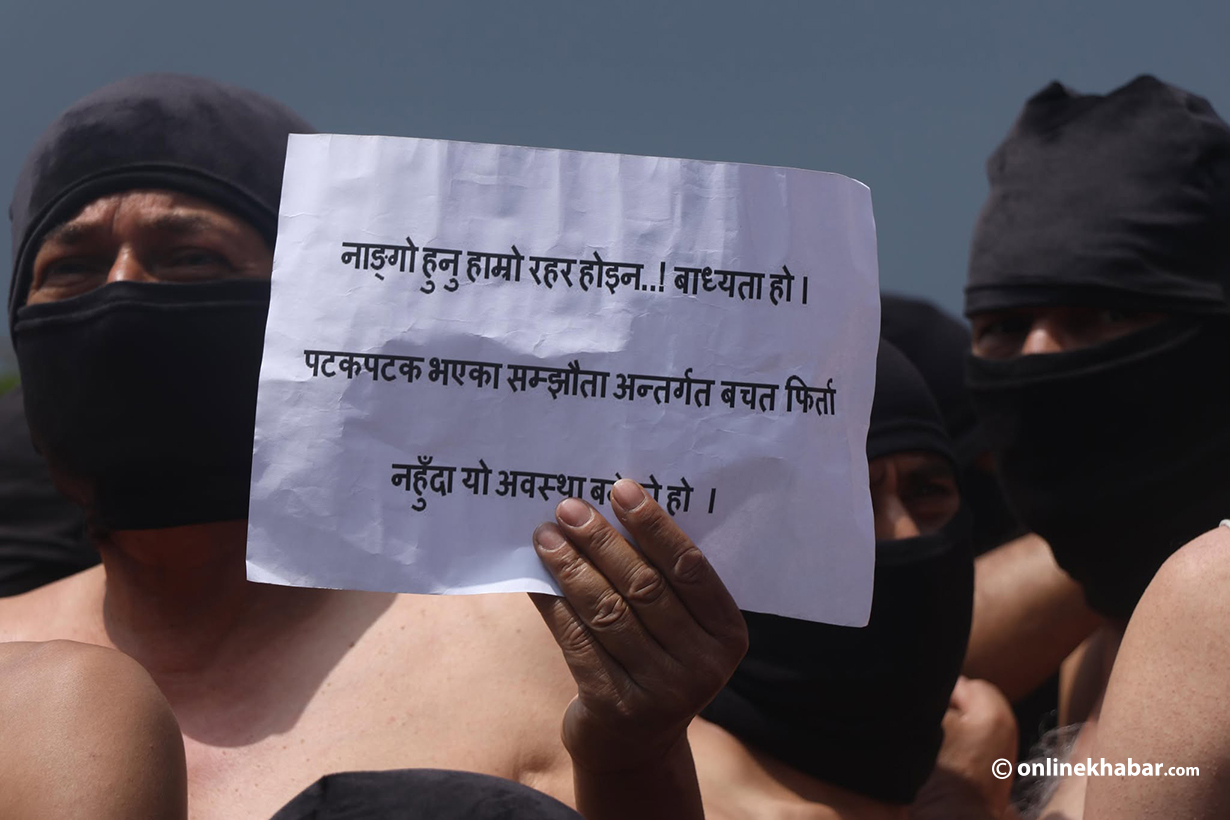 नाङ्गो हुनु हाम्रो रहर होइन..! बाध्यता हो ।
पटकपटक भएका सम्झौता अन्तर्गत बचत फिर्ता
नहुँदा यो अवस्था हो ।
© onlinekhabar.com